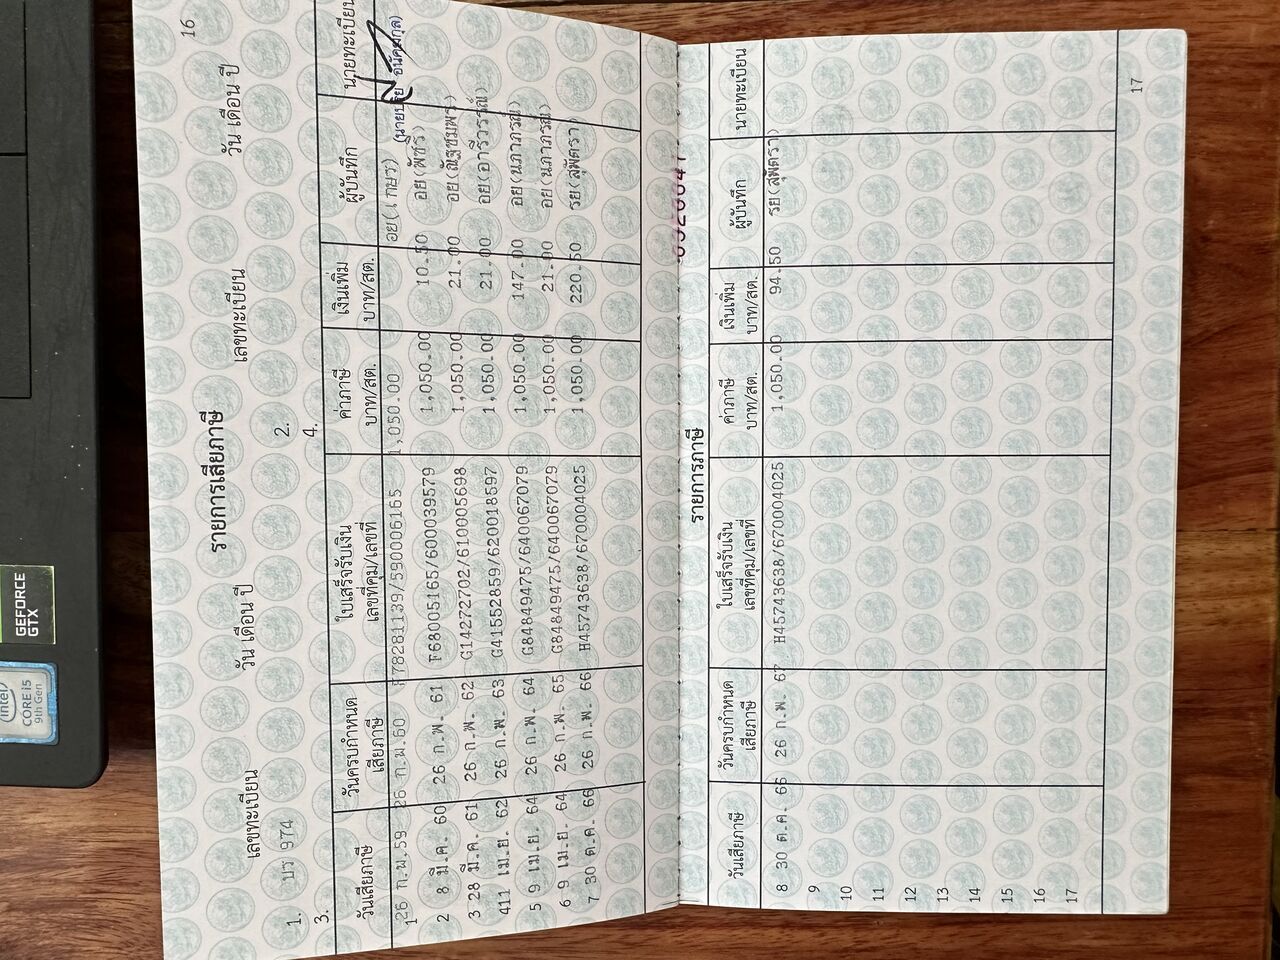 16
รายการเสียภาษี
เลขทะเบียน วัน เดือน ปี เลขทะเบียน วัน เดือน ปี
1. บร 974 2.
3. 4.
วันเสียภาษี วันครบกำหนด เสียภาษี ใบเสร็จรับเงิน เลขที่คุม/เลขที่ ค่าภาษี บาท/สต. เงินเพิ่ม บาท/สต. ผู้บันทึก นายทะเบียน
1 26 ก.พ.59 26 ก.พ.60 78281139/590006165 1,050.00 อย(เกษร)
2 8 มี.ค. 60 26 ก.พ. 61 F68005165/600039579 1,050.00 10.50 อย(พัชรี)
3 28 มี.ค. 61 26 ก.พ. 62 G14272702/610005698 1,050.00 21.00 อย(ณัฐชมพร)
4 11 เม.ย. 62 26 ก.พ. 63 G41552859/620018597 1,050.00 21.00 อย(อารีวรรณ์)
5 9 เม.ย. 64 26 ก.พ. 64 G84849475/640067079 1,050.00 147.00 อย(นภาภรณ)
6 9 เม.ย. 64 26 ก.พ. 65 G84849475/640067079 1,050.00 21.00 อย(นภาภรณ)
7 30 ต.ค. 66 26 ก.พ. 66 H45743638/670004025 1,050.00 220.50 รย(สุพัตรา)
รายการภาษี
วันเสียภาษี วันครบกำหนด เสียภาษี ใบเสร็จรับเงิน เลขที่คุม/เลขที่ ค่าภาษี บาท/สต. เงินเพิ่ม บาท/สต. ผู้บันทึก นายทะเบียน
8 30 ต.ค. 66 26 ก.พ. 67 H45743638/670004025 1,050.00 94.50 รย(สุพัตรา)
9
10
11
12
13
14
15
16
17
17
GEFORCE
GTX
intel
CORE i5
9th Gen